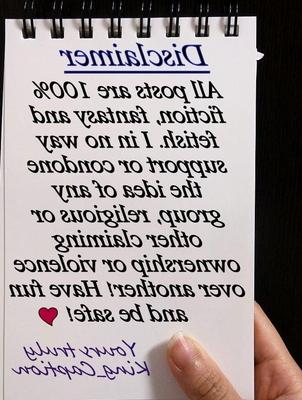 Disclaimer
All posts are 100%
fiction, fantasy, and
fetish. I in no way
support or condone
the idea of any
group, religious or
other claiming
ownership or violence
over another! Have fun
and be safe!
Yours truly
King_Caption